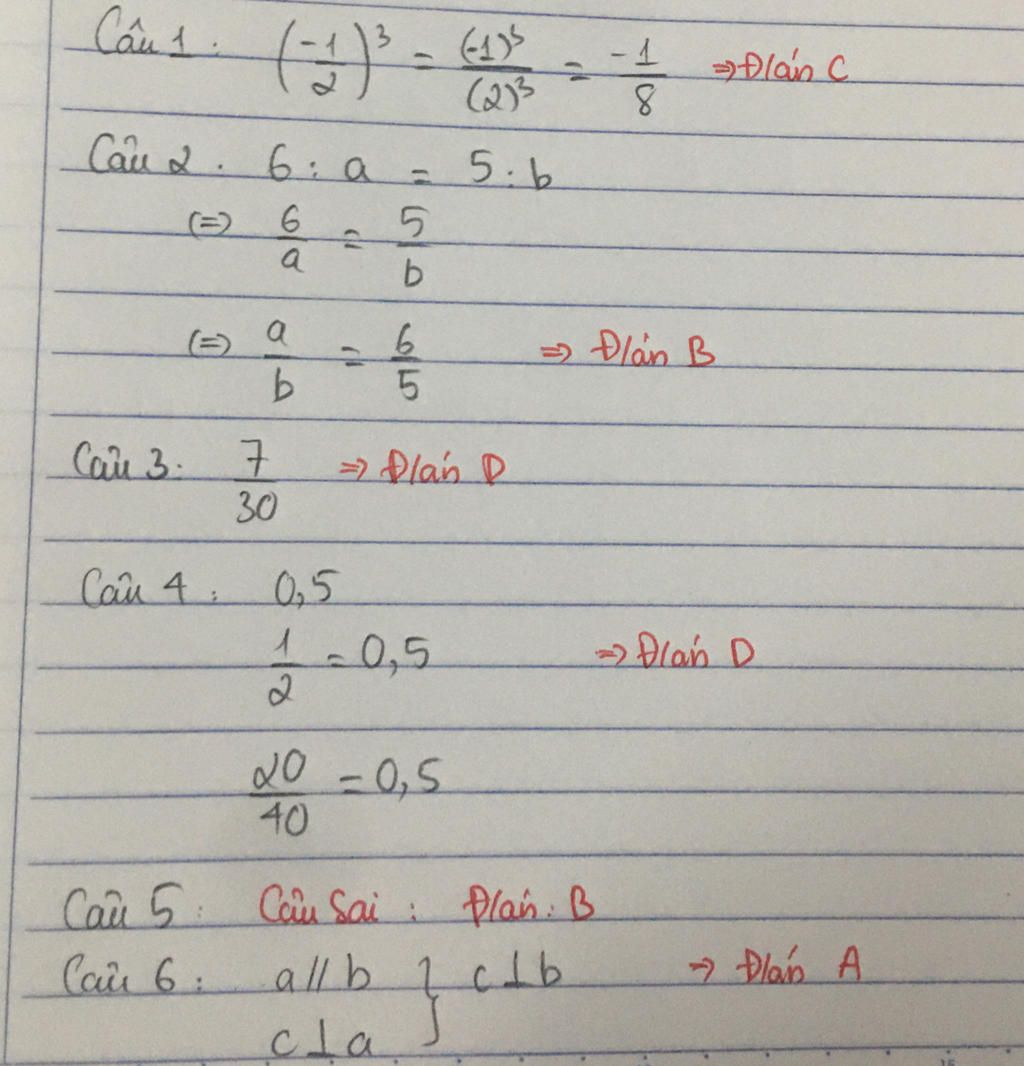 Câu 1 : (-1/2)³ = (-1)³/(2)³ = -1/8 => Đ/án C
Câu 2 . 6 : a = 5 : b
(=) 6/a = 5/b
(=) a/b = 6/5 => Đ/án B
Câu 3 : 7/30 => Đ/án D
Câu 4 : 0,5
1/2 = 0,5 => Đ/án D
20/40 = 0,5
Câu 5 : Câu Sai : Đ/án : B
Câu 6 : a // b } c ⊥ b => Đ/án A
c ⊥ a